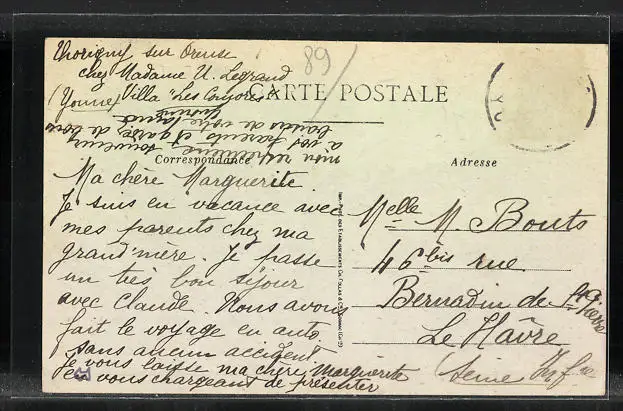 Thorigny sur Oreuse
chez Madame U. Legrand
(Yonne) Villa "Les
89
CARTE POSTALE
Correspondance
Adresse
Ma chère Marguerite
Je suis en vacance avec
mes parents chez ma
grand'mère. Je passe
un très bon séjour
avec Claude. Nous avons
fait le voyage en auto.
sans aucun accident
Je vous laisse ma chère Marguerite
en vous chargeant de présenter
mon respectueux souvenir
à vos parents et gardez de bons
baisers de votre
Melle M. Bouts
46 bis rue
Bernardin de St
Pierre
Le Hâvre
Seine Inf re
YO